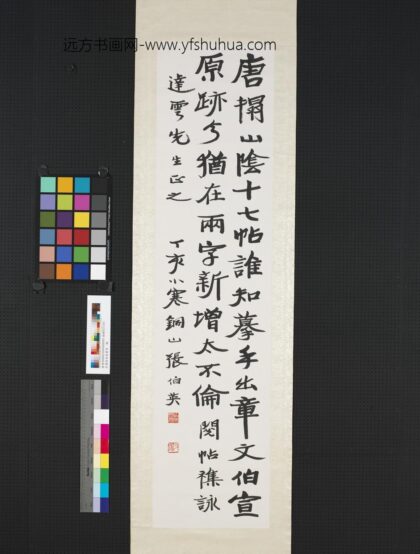 远方书画网-www.yfshuhua.com
唐搨山陰十七帖誰知摹手出章文伯宣
原跡今猶在兩字新增太不倫 閱帖襍詠
達雲先生正之 丁亥小寒銅山張伯英